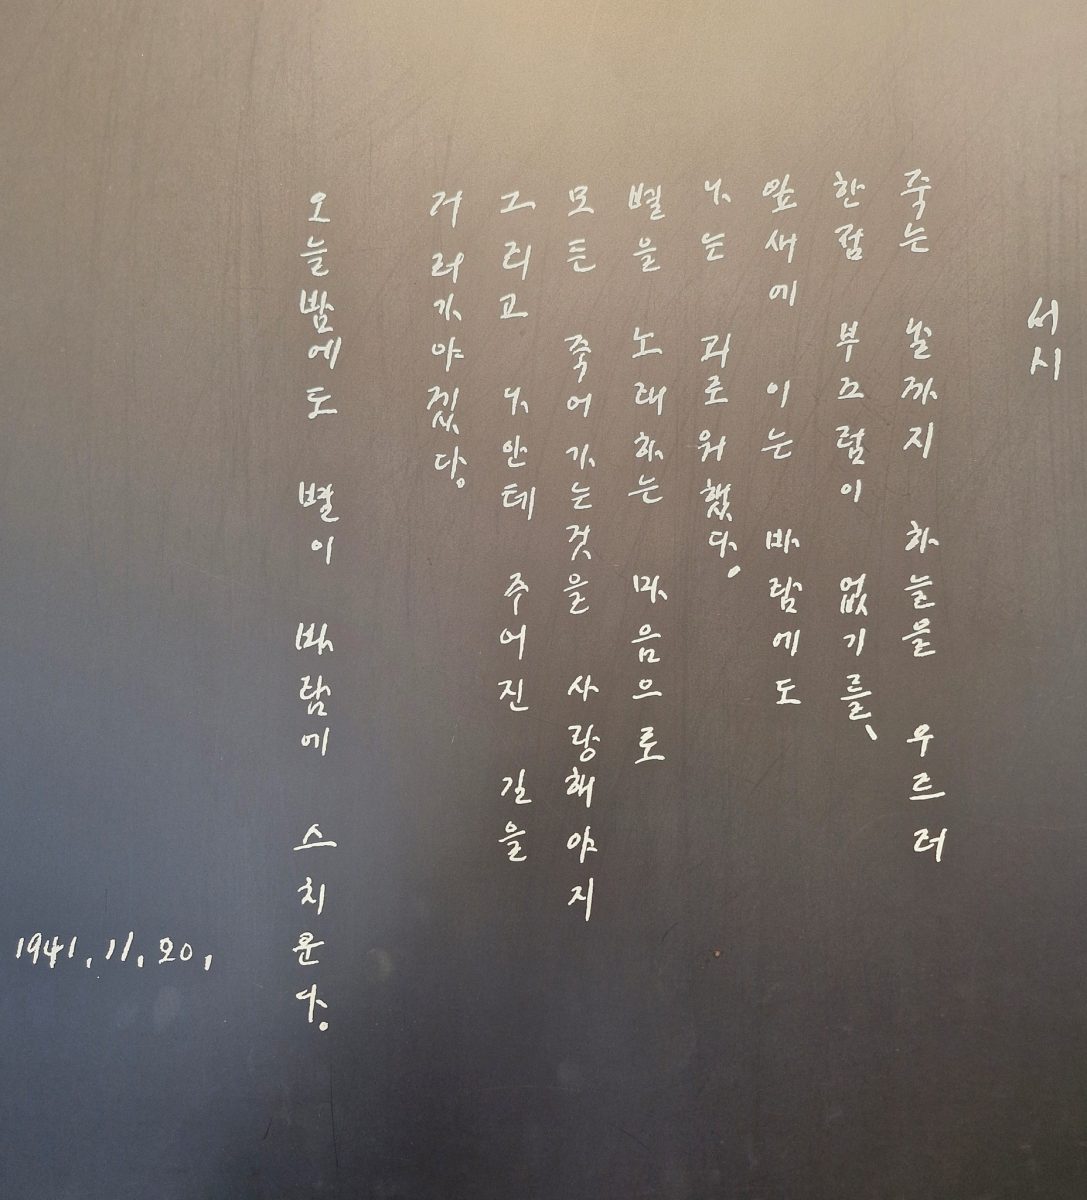 서시
죽는 날까지 하늘을 우르러
한점 부끄럼이 없기를、
잎새에 이는 바람에도
나는 괴로워했다。
별을 노래하는 마음으로
모든 죽어가는것을 사랑해야지
그리고 나안테 주어진 길을
거러가야겠다。
오늘밤에도 별이 바람에 스치운다。
1941. 11. 20.